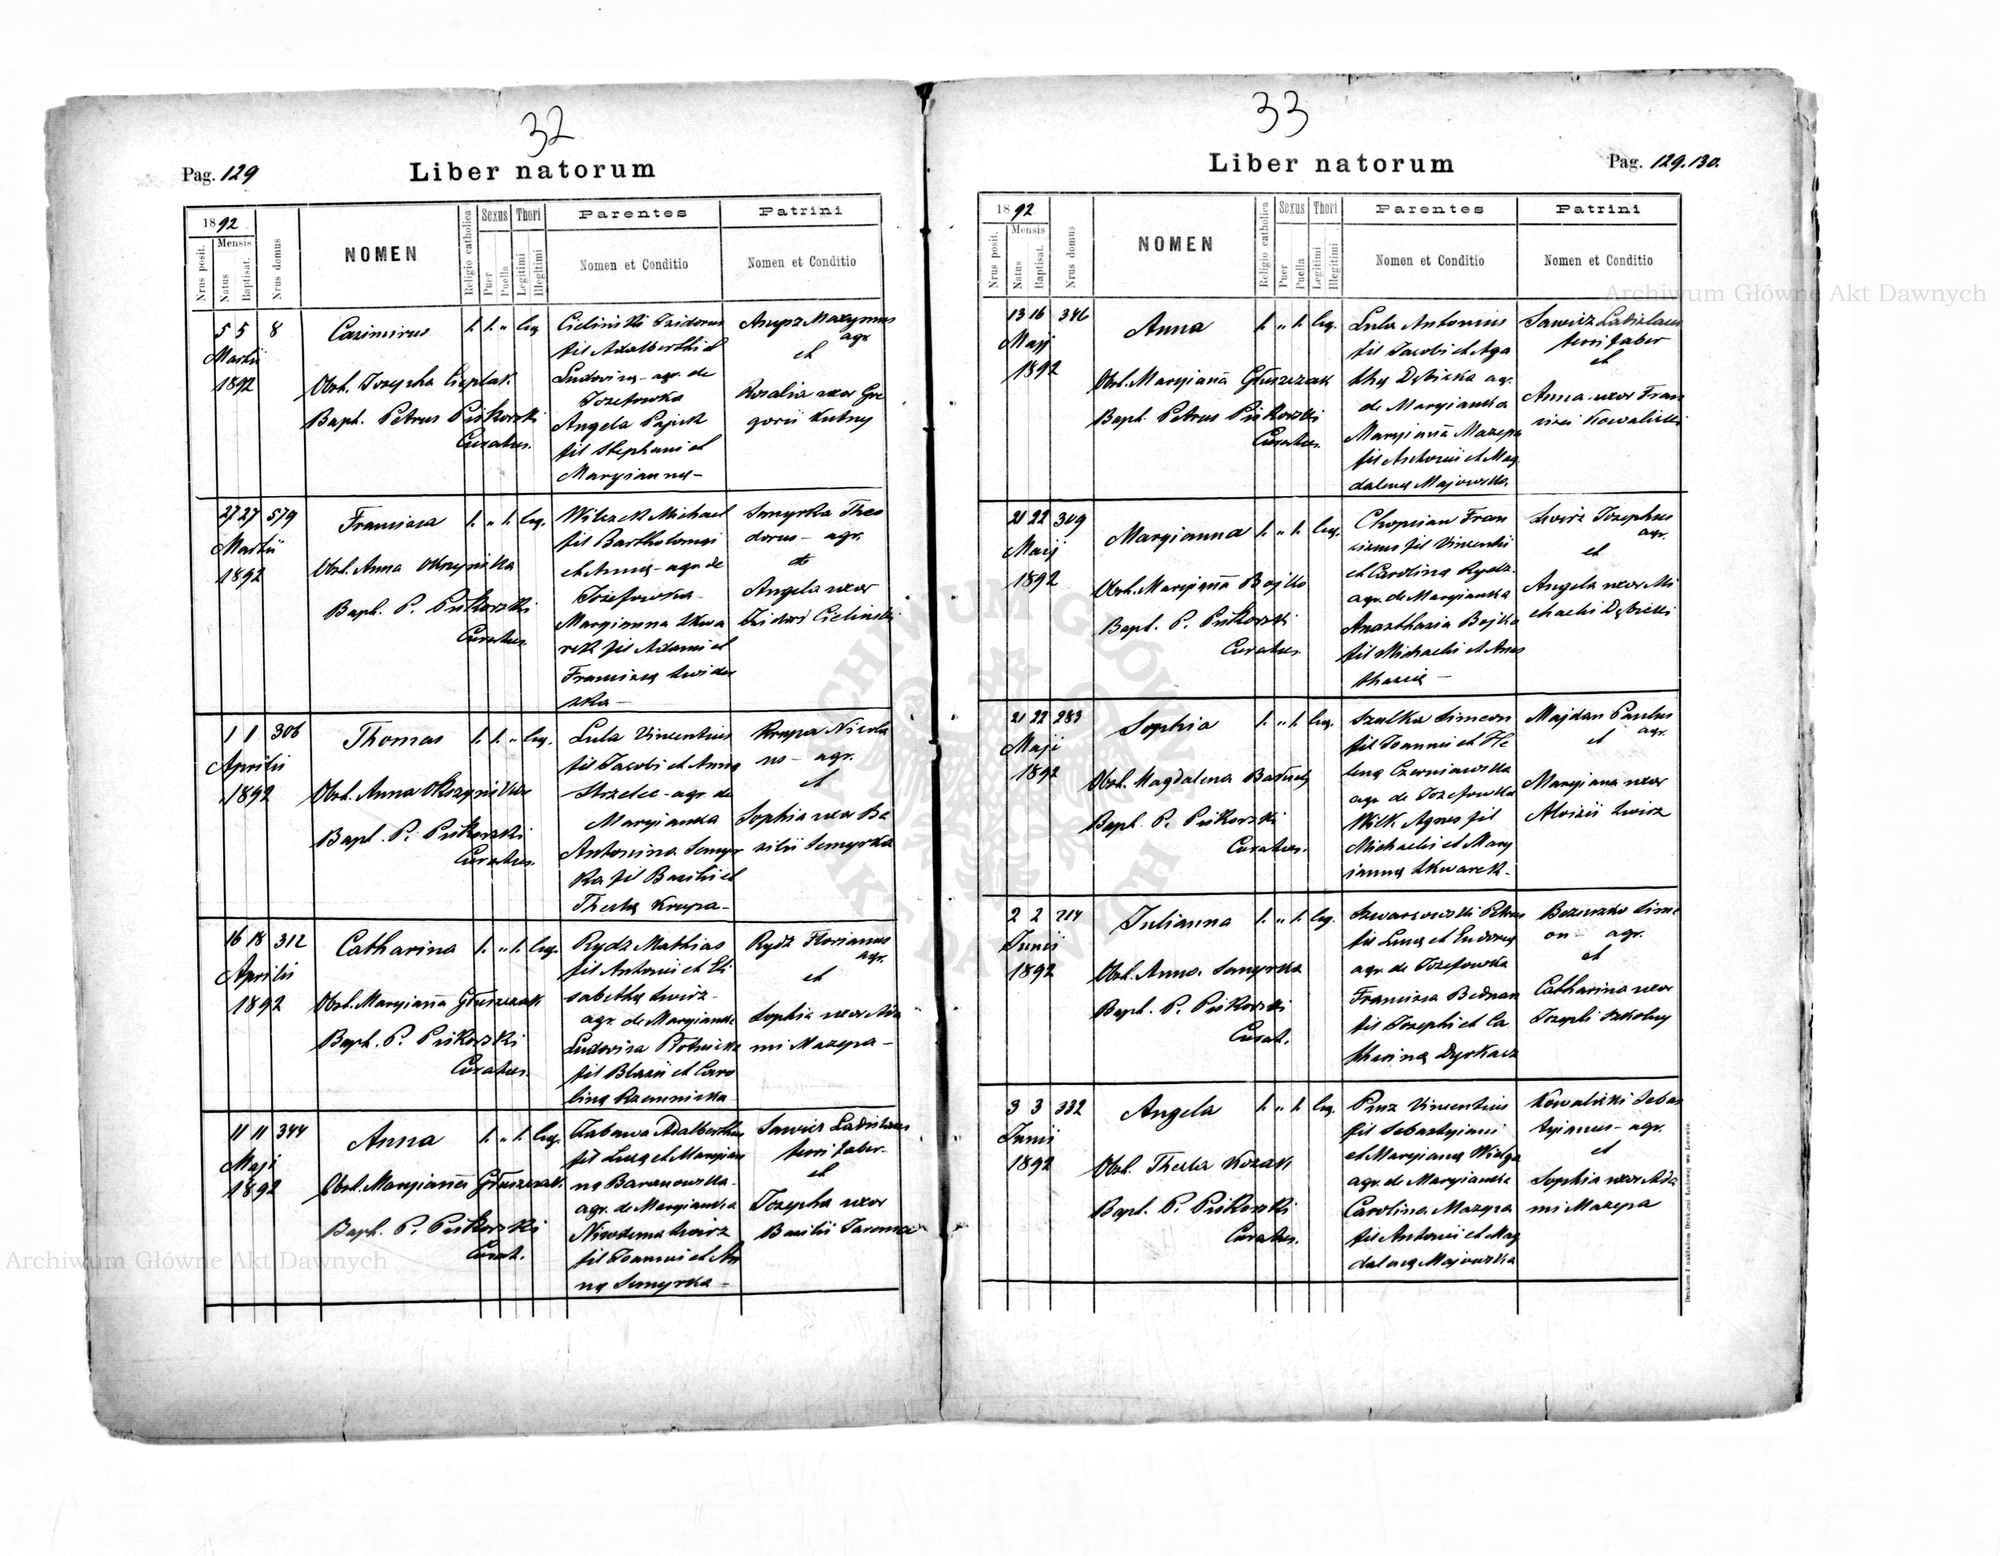 32
Pag. 129
Liber natorum
1892
Mensis
Nrus posit.
Natus
Baptisat.
Nrus domus
NOMEN
Religio catholica
Sexus
Puer
Puella
Thori
Legitimi
Illegitimi
Parentes
Nomen et Conditio
Patrini
Nomen et Conditio
5 5 8
Martii
1892
Casimirus
Obst. Josepha
Bapt. Petrus Piskorski
Curatus.
1. 1. „ leg
Cieliński Izidorus
fil Adalberthi et
Ludovicę - agr. de
Józefówka
Angela Pajęk
fil Stephani et
Maryiannę -
Maxymus
agr
et
Rosalia uxor Gre
gorii Kutny
27 27 579
Martii
1892
Francisca
Obst. Anna
Bapt. P. Piskorski
Curatus.
1. „ 1. leg.
Wilczek Michael
fil Bartholomęi
et Annę - agr. de
Józefówka -
Maryianna Skwa
rek fil Adami et
Franciscę Świder
ska -
Smyrka Theo
dorus - agr.
et
Angela uxor
Izidori Cieliński
1 1 306
Aprilis
1892
Thomas
Obst. Anna
Bapt. P. Piskorski
Curatus.
1. 1. „ leg.
Lula Vincentius
fil Jacobi et Annę
Strzelec - agr. de
Maryianka
Antonina Smyr
ka fil Basilii et
Theklę Krupa -
Krupa Nicola
us - agr.
et
Sophia uxor Ba
silii Smyrka
16 18 312
Aprilis
1892
Catharina
Obst. Maryianna Głuszczak
Bapt. P. Piskorski
Curatus.
1. „ 1. leg.
Rydz Mathias
fil Antonii et Eli
sabethę Świrz -
agr. de Maryianka
Ludovica Płotnicka
fil Blasii et Caro
linę Rzemnicka -
Rydz Florianus
agr.
et
Sophia uxor Ada
mi Mazepa -
11 11 344
Maji
1892
Anna
Obst. Maryianna Głuszczak
Bapt. P. Piskorski
Curat.
1. „ 1. leg.
Zabawa Adalberthus
fil Lucę et Maryian
nę Baranowska -
agr. de Maryianka
Nicodema Świrz
fil Joannis et An
nę Smyrka -
Sawicz Ladislaus
ferri faber.
et
Josepha uxor
Basilii
33
Liber natorum
Pag. 129.130.
1892
Mensis
Nrus posit.
Natus
Baptisat.
Nrus domus
NOMEN
Religio catholica
Sexus
Puer
Puella
Thori
Legitimi
Illegitimi
Parentes
Nomen et Conditio
Patrini
Nomen et Conditio
13 16 346
Maji
1892
Anna
Obst. Maryianna Głuszczak
Bapt. Petrus Piskorski
Curatus.
1. „ 1. leg.
Lula Antonius
fil Jacobi et Aga
thę Dębicka agr.
de Maryianka
Maryianna Mazepa
fil Antonii et Mag
dalenę Majowska.
Sawicz Ladislaus
ferri faber
et
Anna uxor Fran
cisci Kowalicki
21 22 309
Maji
1892
Maryianna
Obst. Maryianna Bojko
Bapt. P. Piskorski
Curatus.
1. „ 1. leg.
Chopcian Fran
ciscus fil Vincentii
et Carolinę Rydz.
agr. de Maryianka
Anasthasia Bojko
fil Michaelis et Anas
thasię -
Świrz Josephus
agr.
et
Angela uxor Mi
chaelis Dębicki
21 22 283
Maji
1892
Sophia
Obst. Magdalena
Bapt. P. Piskorski
Curatus.
1. „ 1. leg.
Szalka Simeon
fil Joannis et He
lenę Czerniawska
agr. de Józefówka
Wilk Agnes fil
Michaelis et Mary
iannę Skwarek.
Majdan Paulus
agr.
et
Maryiana uxor
Aloisii Świrz
2 2 214
Junii
1892
Julianna
Obst. Anna Smyrka
Bapt. P. Piskorski
Curat.
1. „ 1. leg.
Szwarcowski Petrus
fil Lucę et Eudoxię
agr. de Józefówka
Francisca Bednarz
fil Josephi et Ca
tharinę Dyrkacz
Bezuszko Sime
on - agr.
et
Catharina uxor
Josephi Szkolny
3 3 332
Junii
1892
Angela
Obst. Thecla Kozak
Bapt. P. Piskorski
Curatus.
1. „ 1. leg.
Puz Vincentius
fil Sebastyiani
et Maryianę Wielga
agr. de Maryianka
Carolina Mazepa
fil Antonii et Mag
dalenę Majowska
Kowalicki Sebas
tyianus - agr.
et
Sophia uxor Ada
mi Mazepa
Drukiem i nakładem Drukarni Ludowej we Lwowie.
Archiwum Główne Akt Dawnych
Archiwum Główne Akt Dawnych
ARCHIWUM GŁÓWNE AKT DAWNYCH